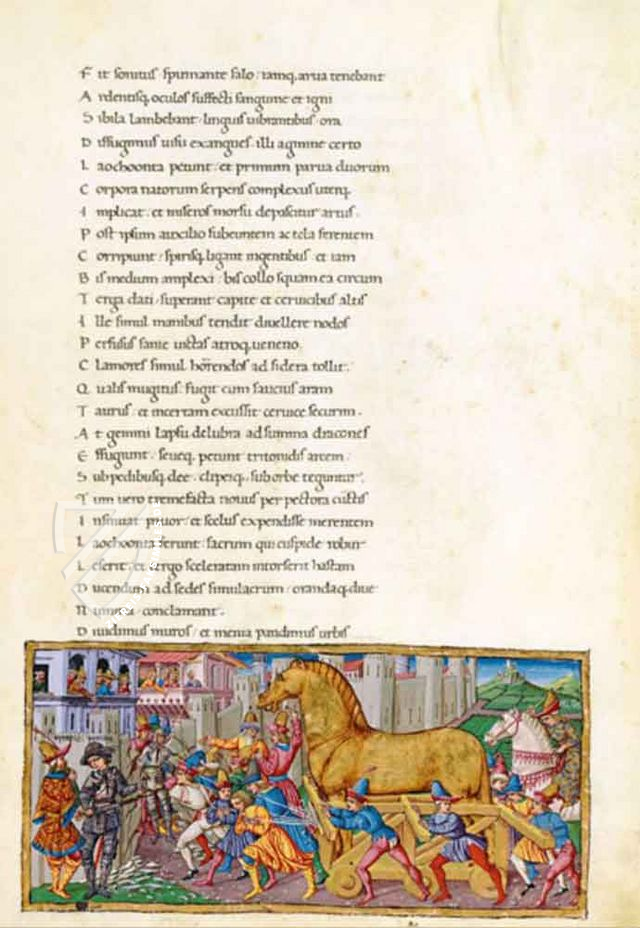 F it sonitus spumante salo: iamq, arua tenebant
A rdentisq, oculos suffecti sanguine et igni
S ibila lambebant linguis uibrantibus ora
D iffugimus uisu exangues. illi agmine certo
L aochoonta petunt: et primum parua duorum
C orpora natorum serpens complexus uterq,
I mplicat: et miseros morsu depascitur artus.
P ost ipsum auxilio subeuntem ac tela ferentem
C orripiunt: spirisq, ligant ingentibus et iam
B is medium amplexi: bis collo squamea circum
T erga dati: superant capite et ceruicibus altis
I lle simul manibus tendit diuellere nodos
P erfusus sanie uictas atroq, ueneno.
C lamores simul horrendos ad sidera tollit:
Q ualis mugitus: fugit cum saucius aram
T aurus: et incertam excussit ceruice securim.
A t gemini lapsu delubra ad summa dracones
E ffugiunt: seueq, petunt tritonidis arcem.
S ub pedibusq, dee: clipeiq, sub orbe teguntur.
T um uero tremefacta nouus per pectora cunctis
I nsinuat pauor: et scelus expendisse merentem
L aochoonta ferunt: sacrum qui cuspide robur
L eserit: et tergo sceleratam intorserit hastam
D ucendum ad sedes simulacrum: orandaq, diue
N umina conclamant.
D iuidimus muros: et menia pandimus urbis